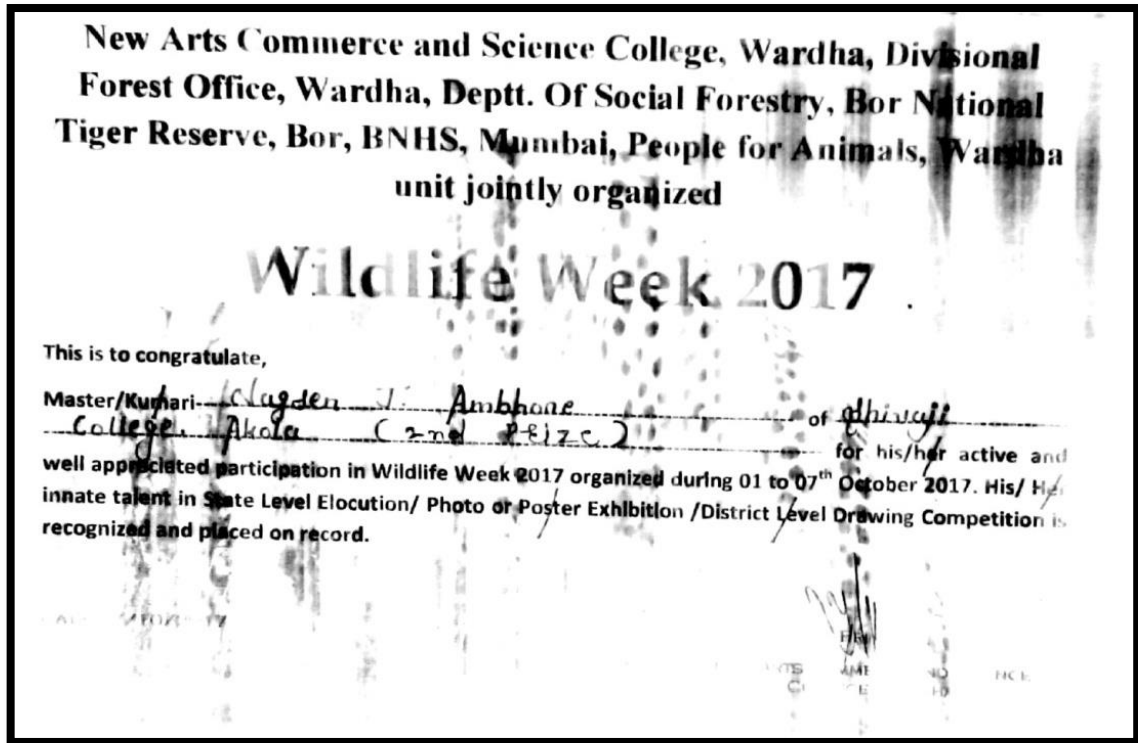 New Arts Commerce and Science College, Wardha, Divisional
Forest Office, Wardha, Deptt. Of Social Forestry, Bor National
Tiger Reserve, Bor, BNHS, Mumbai, People for Animals, Wardha
unit jointly organized
Wildlife Week 2017
This is to congratulate,
Master/Kumari Ambhore of Shivaji
College, Akola (2nd Prize) for his/her active and
well appreciated participation in Wildlife Week 2017 organized during 01 to 07th October 2017. His/ Her
innate talent in State Level Elocution/ Photo or Poster Exhibition /District Level Drawing Competition is
recognized and placed on record.